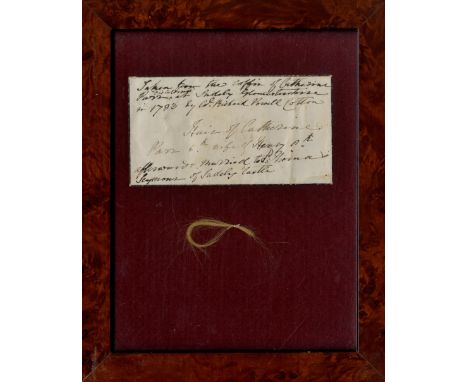 Taken from the coffin of Catherine
Parr at Sudeley Gloucestershire
in 1783 by Col. Richard Powell Cotton
Hair of Catherine
Parr 6th wife of Henry 8th
afterwards married to
Seymour of Sudeley Castle